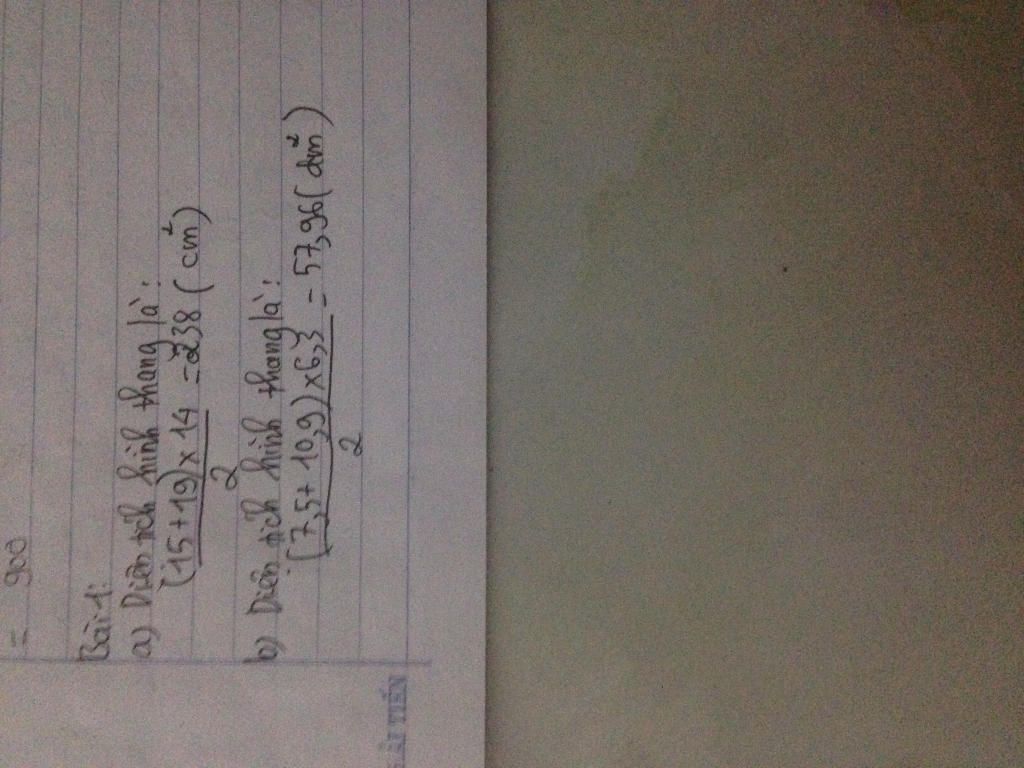 = 900
Bài 1:
a) Diện tích hình thang là:
(15+19)×14 = 238 (cm²)
2
b) Diện tích hình thang là:
(7,5+10,9)×6,3 = 57,96 (dm²)
2
HẢI TIẾN